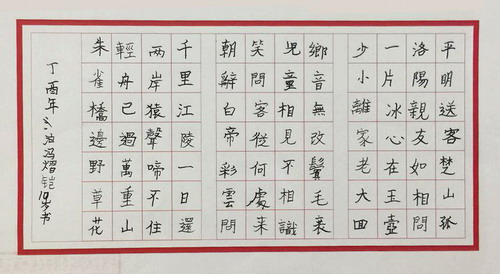 平明送客楚山孤
洛陽親友如相問
一片冰心在玉壺
少小離家老大回
鄉音無改鬢毛衰
兒童相見不相識
笑問客從何處來
朝辭白帝彩雲間
千里江陵一日還
兩岸猿聲啼不住
輕舟已過萬重山
朱雀橋邊野草花
丁酉年 冯熠铠 岁书